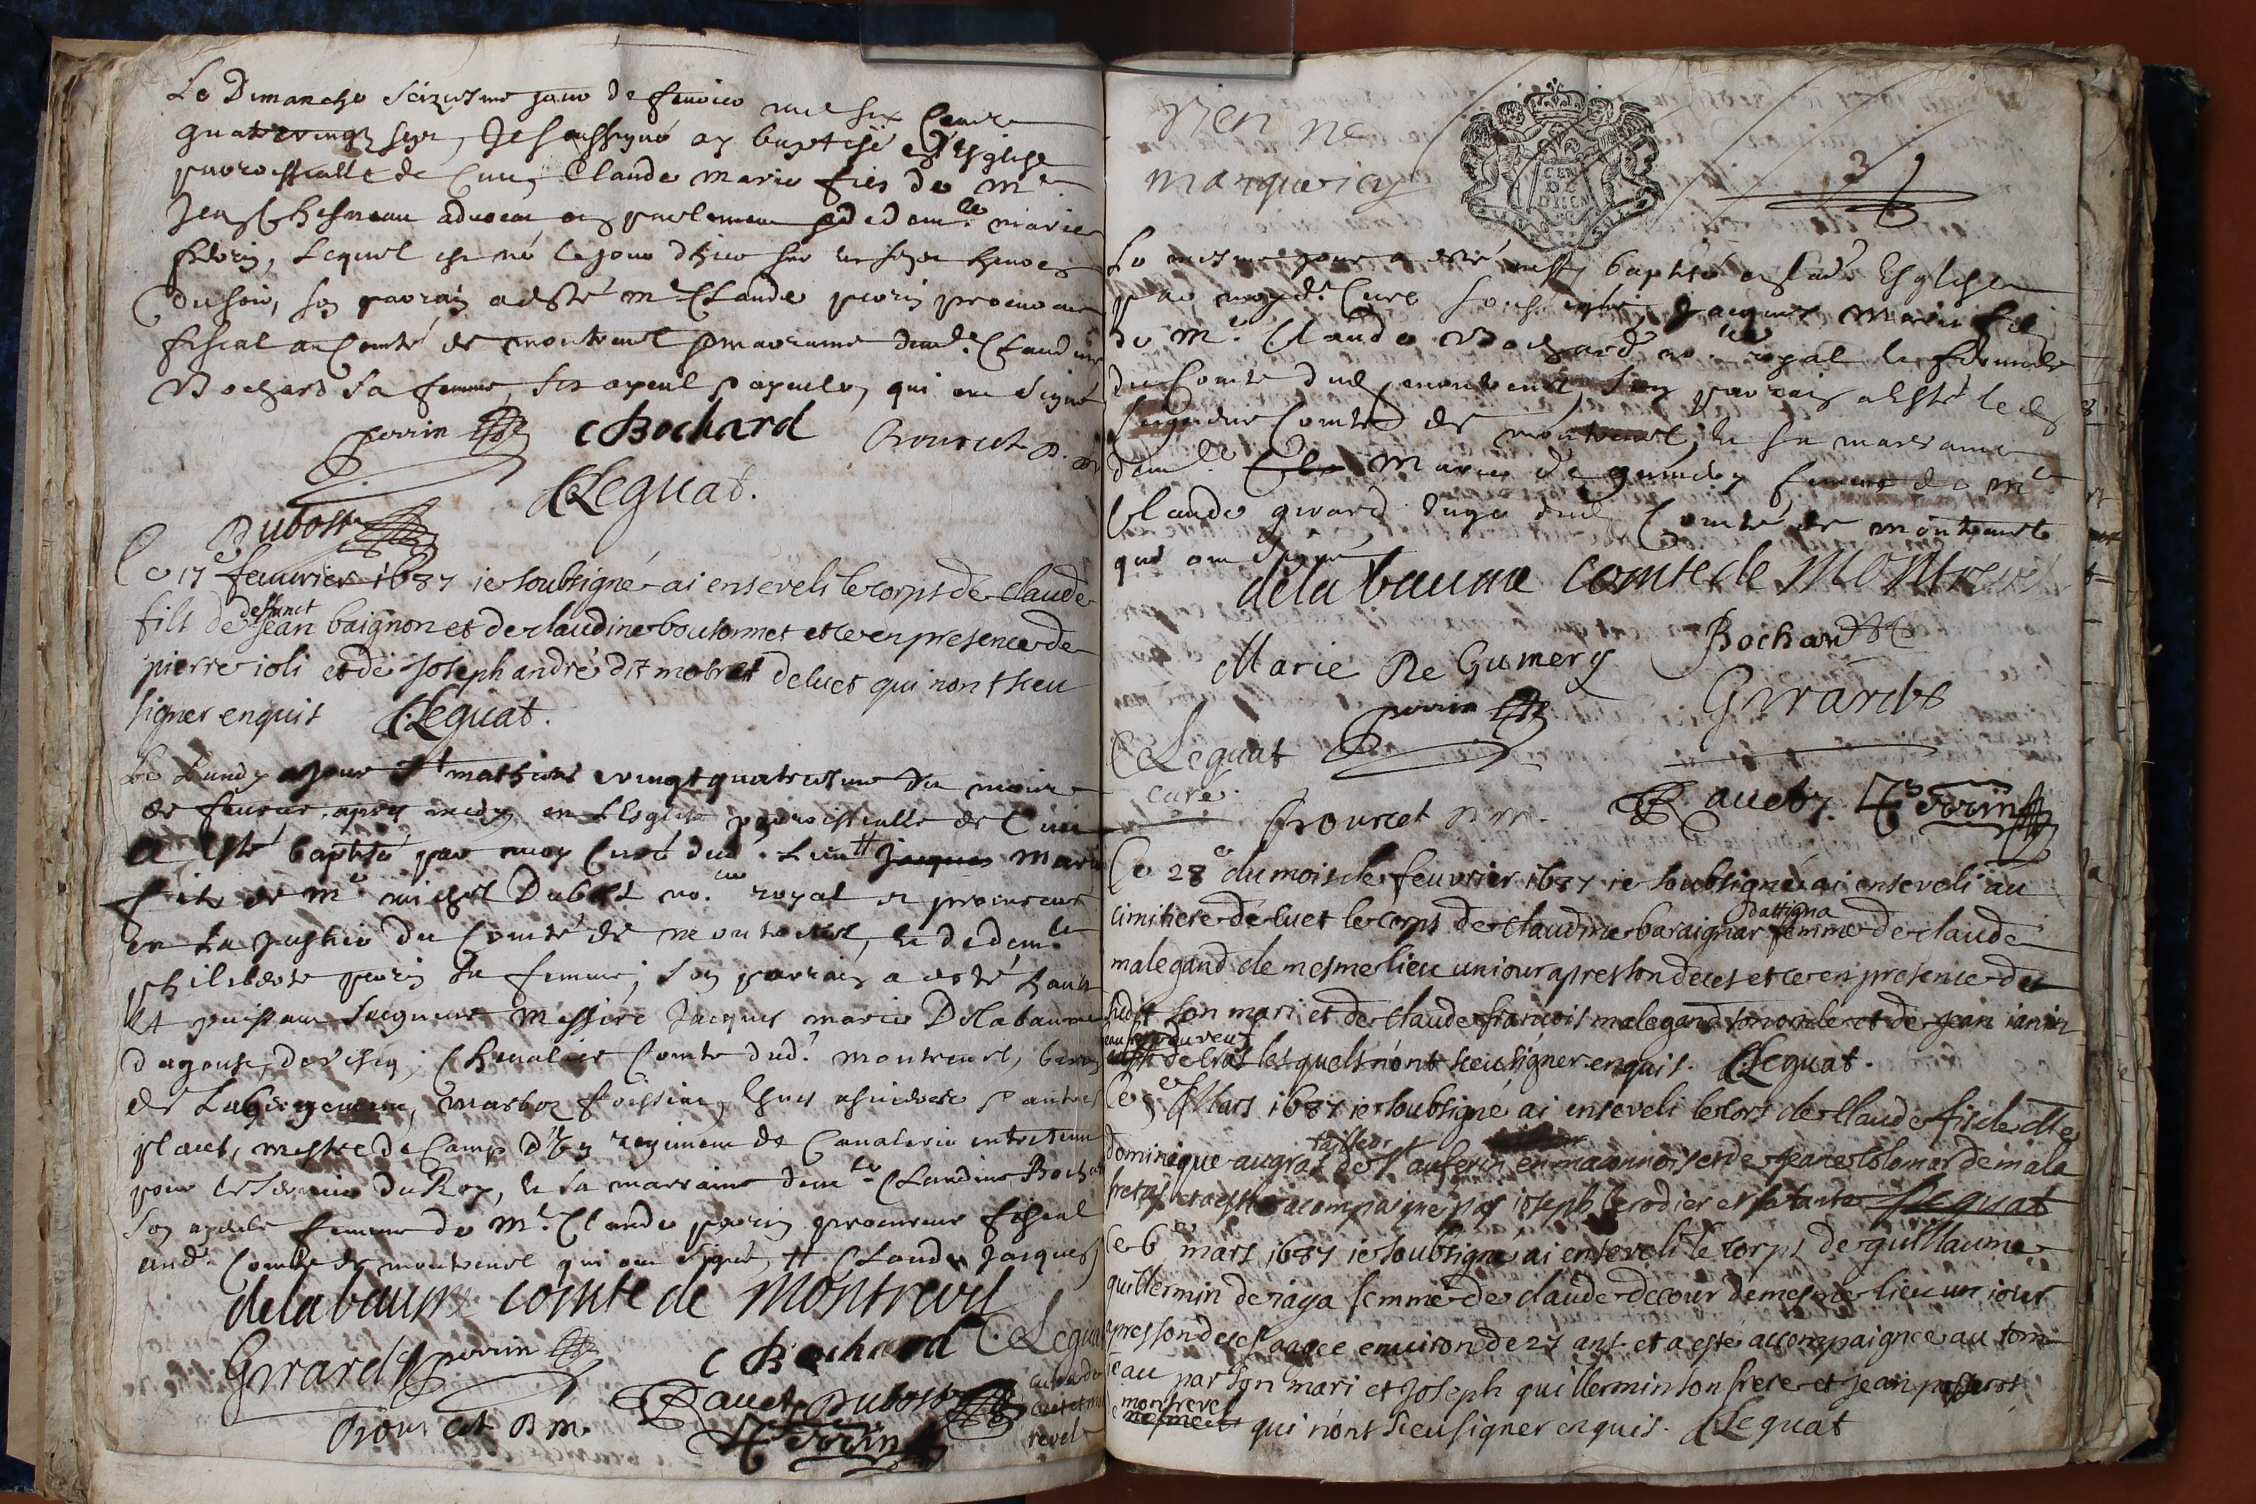 Le Dimanche seiziesme jour de feuvrier mil six cents
quatrevingt sept, Je soussigné ay baptisé en l'Esglise
parroissialle de Cuet, Claude Marie fils de Me
Jean Chesneau aduocat en parlement et de damlle marie
perrin, Lequel est né le jour d'hier sur les sept heures
du soir, son parrain a esté Me Claude perrin procureur
fiscal au Comté de montreuel et marraine damlle Claudine
Bochard sa femme, ses ayeul et ayeule, qui ont signé
perrin C Bochard
C Leguat.
Dubost
Ce 17e feuurier 1687 ie soubsigné ai enseveli le corps de claude
fils de deffunct Jean baignon et de claudine boutonnet et ce en presence de
pierre ioli et de Joseph andré dit de Cuet qui n'ont sceu
signer enquis C Leguat.
Le Lundy jour St mathias vingtquatriesme du mois
de feurier apres midy en L'Esglise parroissialle de Cuet
a esté baptisé par moy Curé dud. Lieu # Jacques Marie
fils de Me michel Dubost no.re royal et procureur
en La Justice du Comté de montreuel, et de damlle
philiberte perrin sa femme, son parrain a esté hault
Et puissant Seigneur Messire Jacques marie Delabaume
Cheualier Comte dud. montreuel, baron
de marboz foissiat, et autres
places, mestre de Camp d'un regiment de Caualerie entretenu
pour le seruice du Roy, et sa marraine damlle Claudine Bochard
son ayeule femme de Me Claude perrin procureur fiscal
aud. Comté de montreuel qui ont signé, # Claude Jacques
delabaume comte de Montrevel
Girard perrin C Bochard C Leguat
Rauet Dubost curé de
cuet et mont
Perrin revel
rien ne
manque icy
3
Le mesme jour a esté aussy baptisé en lad. Esglise
par moyd. Curé soussigné Jacques Marie fils
de Me. Claude Bochard no.re royal et
du Comté dud. montreuel, son parrain a esté led.
Seigneur Comte de montreuel, et sa marraine
damlle Marie de gumery femme de Me
Claude girard Juge dud. Comté de montreuel
qui ont signé
delabaume comte de Montrevel
Marie De Gumery Bochard
perrin Girard
C Leguat
curé.
Rauet. Perrin
Ce 28e du mois de feuvrier 1687 ie soubsigné ai enseveli au
cimitiere de Cuet le corps de claudine baraignar dattigna femme de claude
malegand de mesme lieu un iour apres son deces et ce en presence du
sudit son mari et de claude françois malegand son oncle et de jean ianin
de Cras lesquels n'ont sceu signer enquis. C Leguat.
Ce 5e Mars 1687 ie soubsigné ai enseveli le cors de claude fils de
dominique augras tailleur de St en maconnois et de Jeanne colomar de mala
fretas et a esté acompaigné par ioseph berodier et sa tante Leguat
Ce 6e mars 1687 ie soubsigné ai enseveli le corps de guillaume
guillermin de iaya femme de claude decour de mesme lieu un iour
apres son deces aagee environ de 27 ans et a esté accompaignee au tom
beau par son mari et Joseph guillermin son frere et Jean
montrevel qui n'ont sceu signer enquis. C Leguat